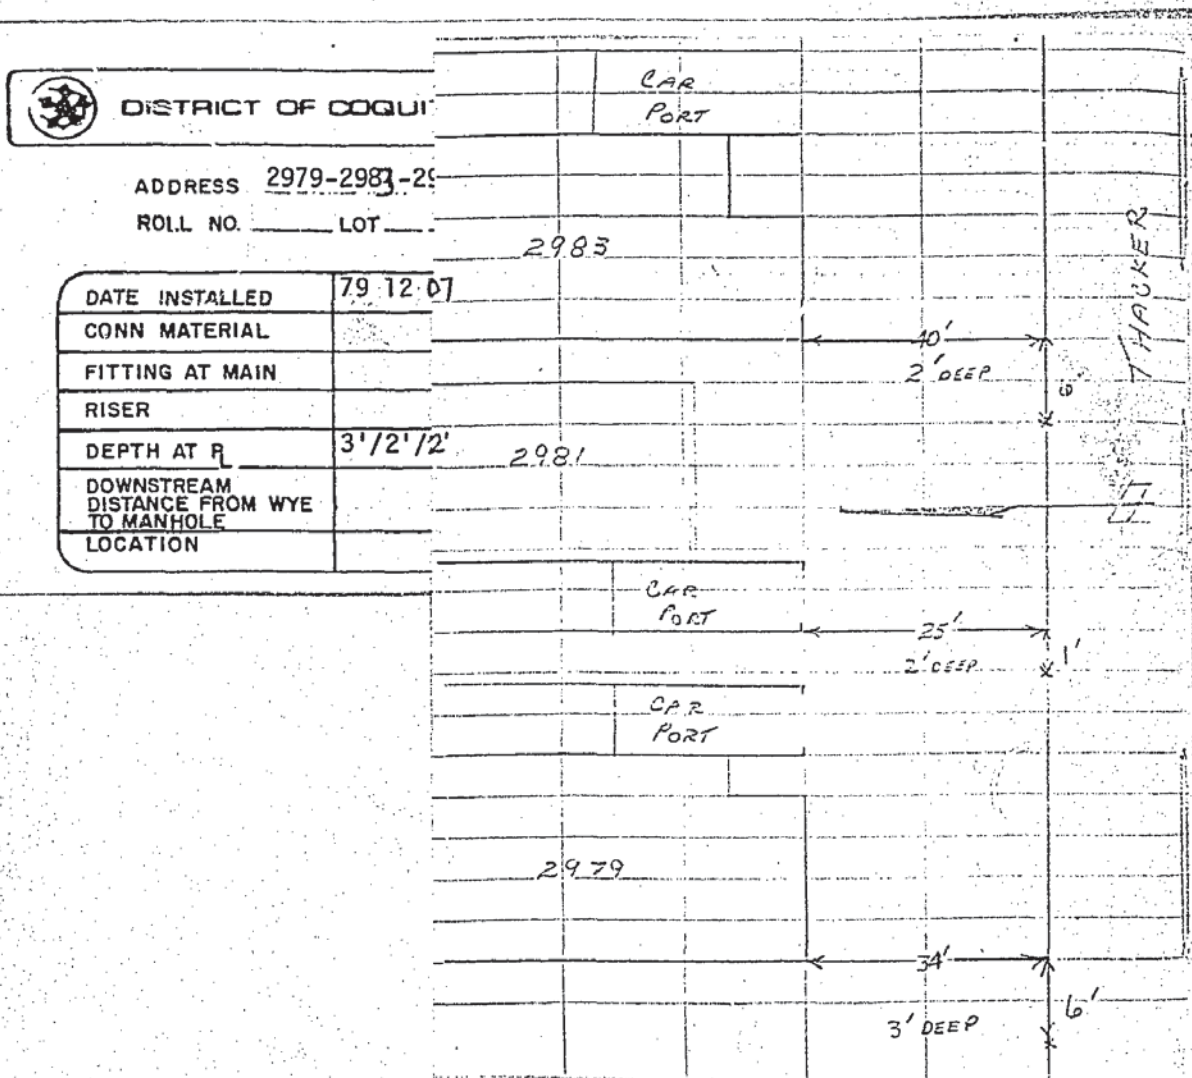 DISTRICT OF COQUIT
ADDRESS 2979-2983-29
ROLL NO. LOT
DATE INSTALLED 79 12 07
CONN MATERIAL
FITTING AT MAIN
RISER
DEPTH AT PL 3'/2'/2'
DOWNSTREAM
DISTANCE FROM WYE
TO MANHOLE
LOCATION
CAR
PORT
2983
THACKER
40'
2' DEEP
6'
2981
CAR
PORT
25'
2' DEEP
1'
CAR
PORT
2979
34'
3' DEEP
6'